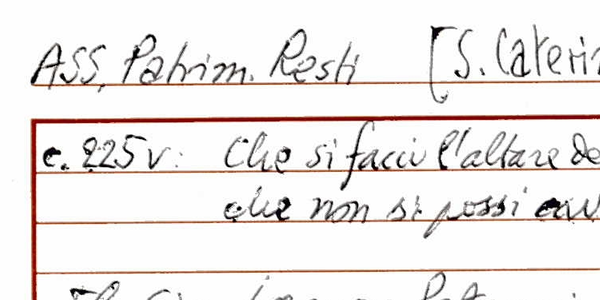 ASS, Patrim. Resti [S. Caterin
c. 225v: Che si facci l'altare de
che non si possi